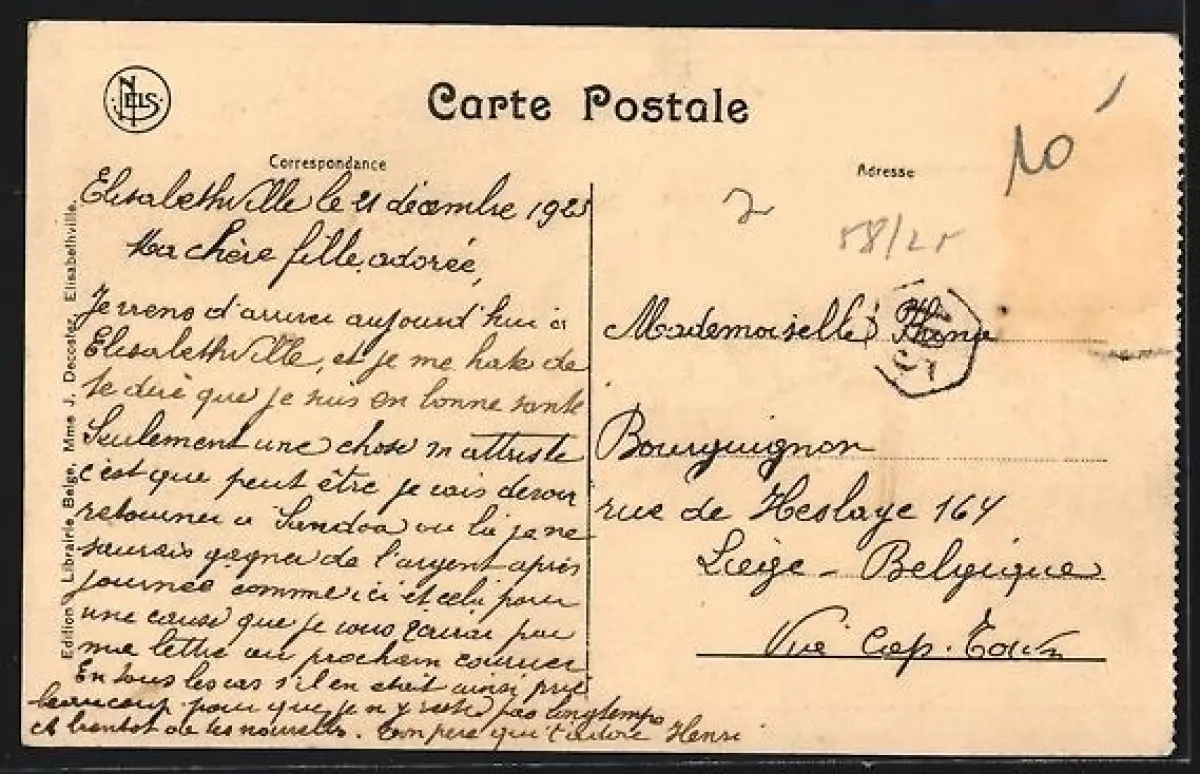 NELS
Carte Postale
Correspondance
Adresse
Elisabethville le 21 décembre 1925
Ma chère fille adorée,
Je viens d'arriver aujourd'hui à
Elisabethville, et je me hate de
te dire que je suis en bonne santé
Seulement une chose m'attriste
c'est que peut être je vais devoir
retourner a Sandoa ou là je ne
saurais gagner de l'argent après
journée comme ici et cela pour
une cause que je vous par
ma lettre au prochain courrier
En tous les cas s'il en etait ainsi prie
beaucoup pour que je n'y reste pas longtemps
A bientot de tes nouvelles. Ton père qui t'adore Henri
Edition Librairie Belge, Mme J. Decoster, Elisabethville.
10
58/25
Mademoiselle
Bourguignon
rue de Heslaye 164
Liège - Belgique
Via Cap-Town